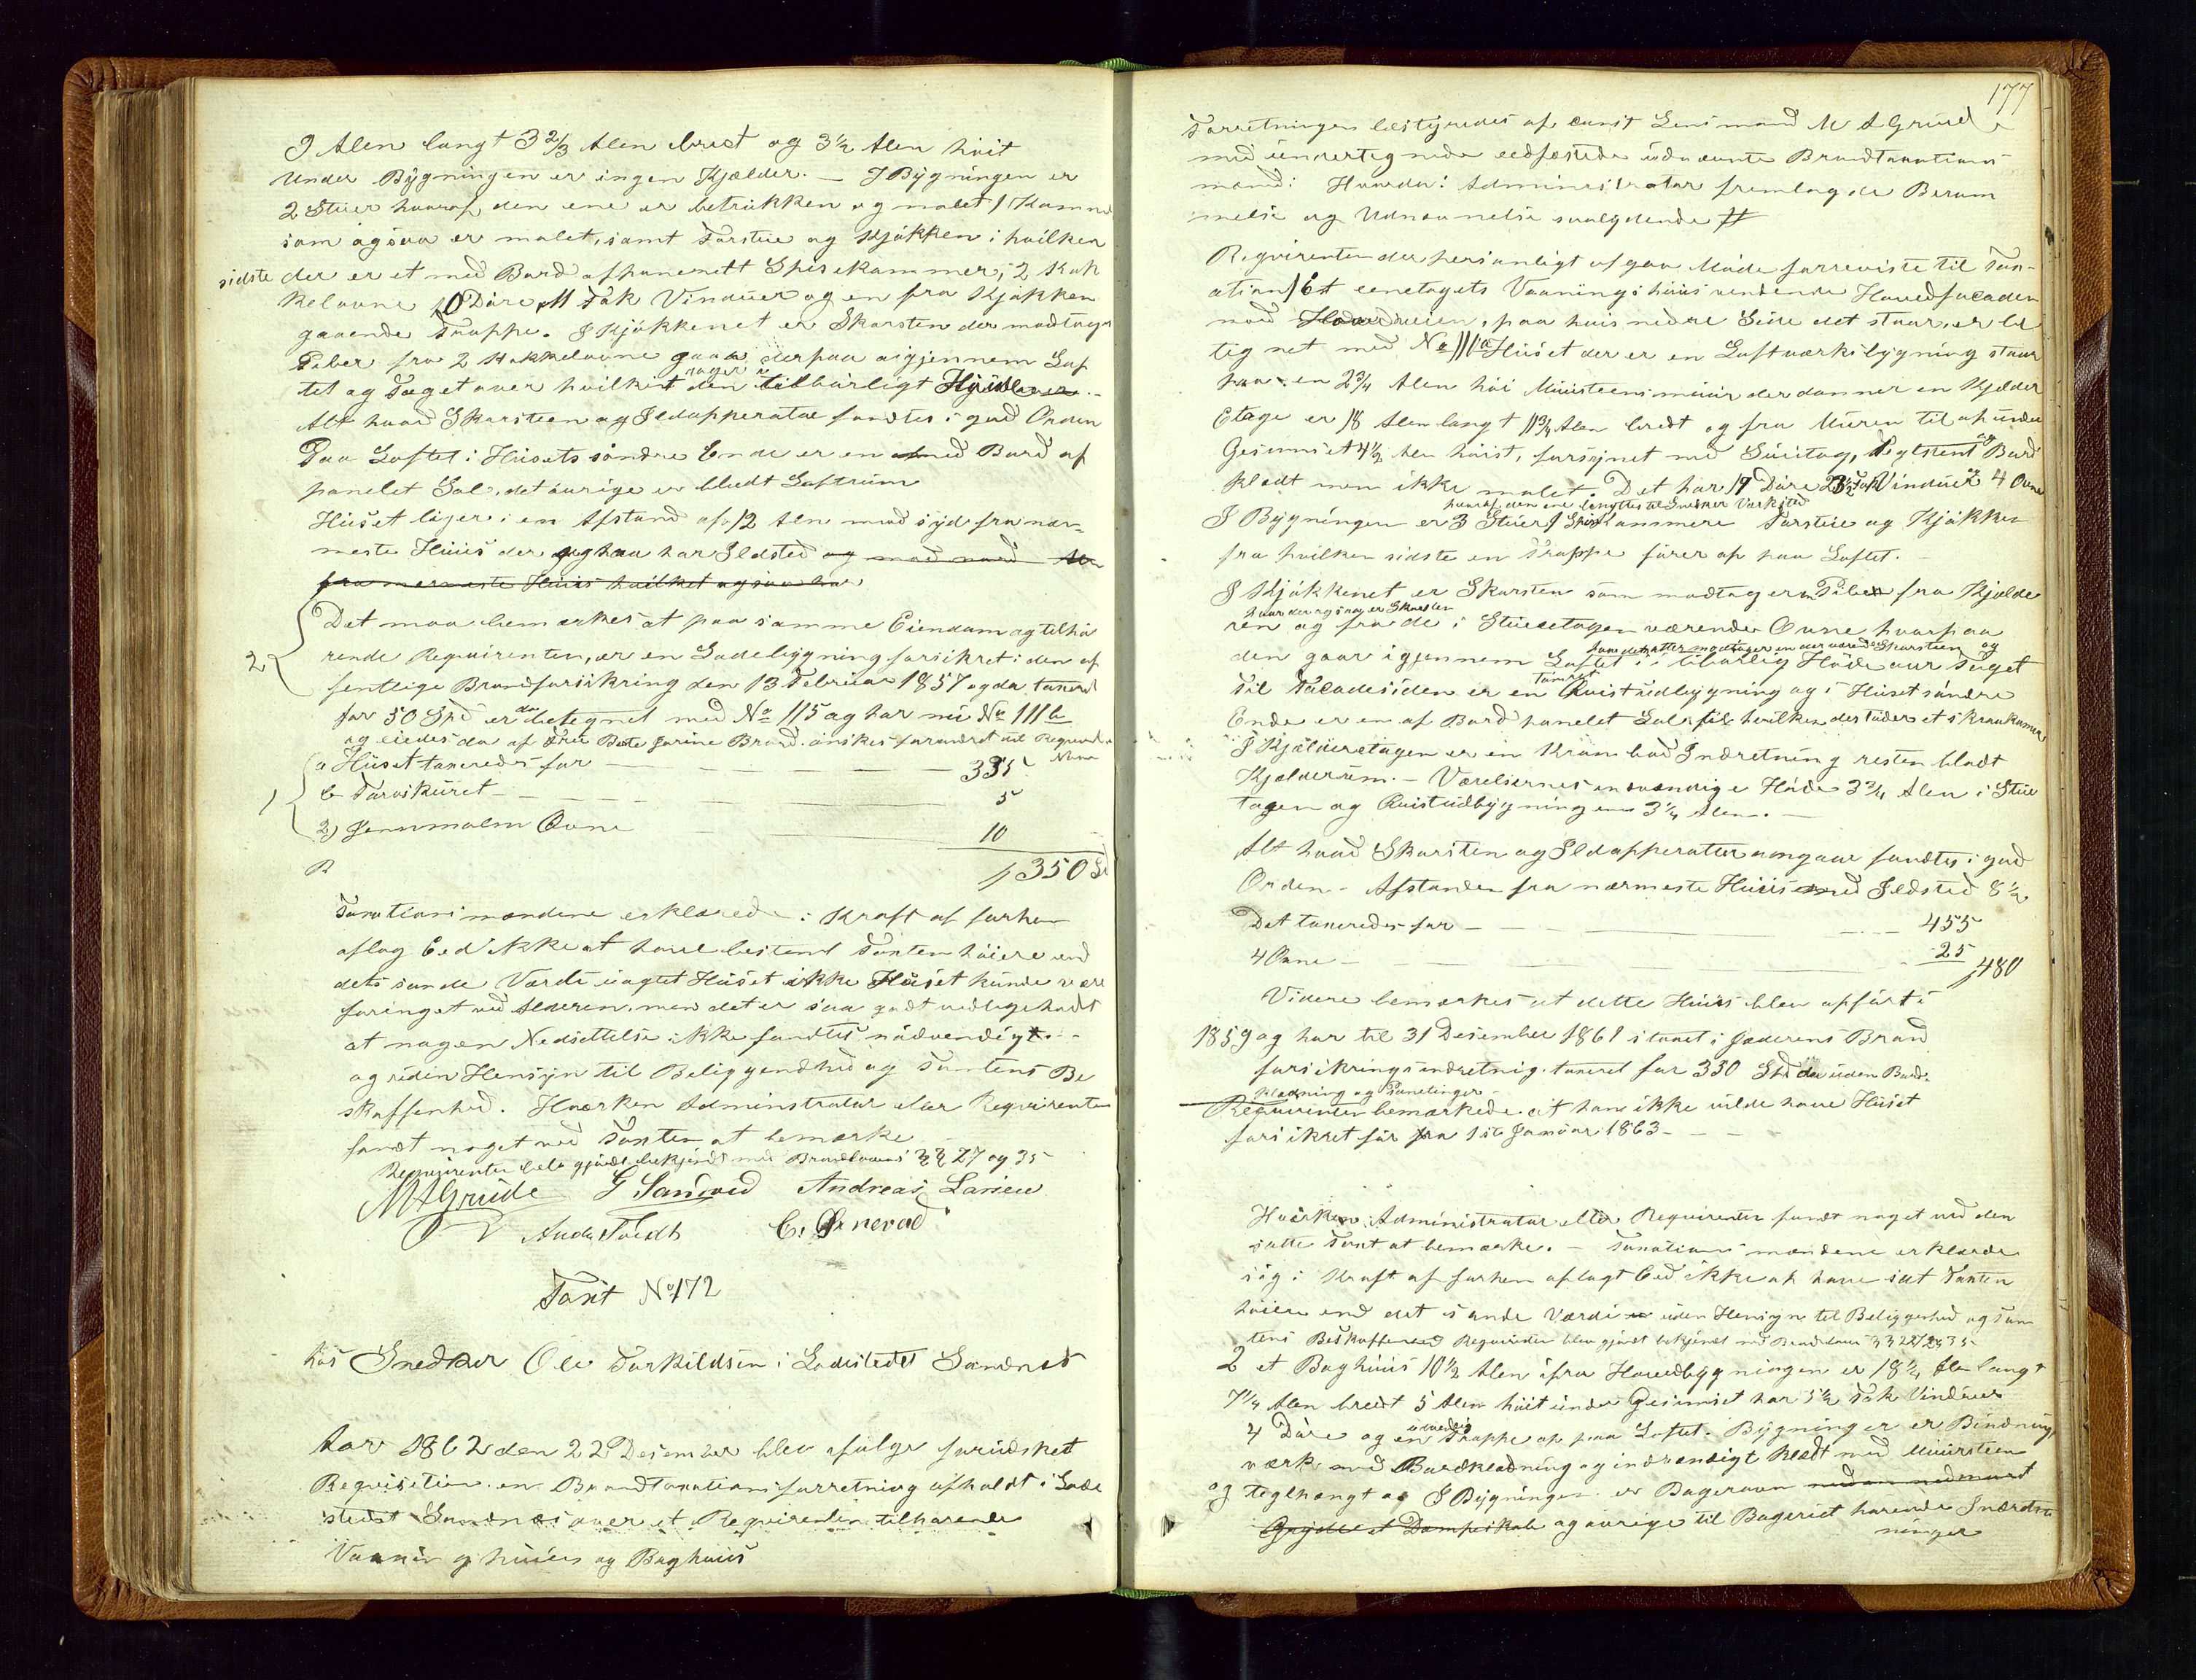 9 Alen langt 3 2/3 Alen bredt og 3 1/2 Alen høit
Under Bygningen er ingen Kjælder. — I Bygningen er
2 Stuer hvoraf den ene er betrukken og malet 1 Kammer
som ogsaa er malet, samt Forstue og Kjøkken i hvilken
sidste der er et med Bord afpanelett Spisekammer, 2 Kak
kelovne 10 Døre 11 Fak Vinduer og en fra Kjøkken
gaaende Trappe. I Kjøkkenet er Skorsten der modtager
Piber fra 2 Kakkelovne gaar derpaa igjennem Lof
tet og Taget over hvilket den rager i tilbørligt Høide
Alt hvad Skorsteen og Ildapperater fandtes i god Orden
Paa Loftet i Husets søndre Ende er en med Bord af
panelet Sal, det øvrige er blodt Loftrum
Huset liger i en Afstand af 12 Alen mod syd fra nær-
meste Huus der ogsaa har Ildsted og mod nord Alen
fra nermeste Huus hvilket ogsaa har
2 Det maa bemærkes at paa samme Eiendom og tilhø
rende Requirenten, er en Ladebygning forsikret i den of
fentlige Brandforsikring den 13 Februar 1857 og da taxeret
for 50 Spd er da betegnet med No 115 og har nu No 111b
og eiedes da af Brand ønskes forandret til Requirentens
Navn
1 a Huset taxeredes for — — — 335
b Torvskuret — — — 5
2) Jernmalm Ovne — 10
R 350 Sp
Taxationsmændene erklærede i Kraft af forhen
aflag Eed ikke at have bestemt Taxten høiere end
dets sande Værdi uagtet Huset ikke Huset kunde være
foringet ved Alderen, men det er saa godt vedligeholdt
at nogen Nedsettelse ikke fandtes nødvendigt
og uden Hensyn til Beliggendhed og Tomtens Be
skaffenhed. Hværken Adminstrator eller Requirenten
fandt noget ved Taxten at bemærke
Requirenten blev gjordt bekjendt med Brandlovens §§ 27 og 35
M A Grude G Sandved Andreas Larsen
Anda Tvedt
Taxt No 172
hos Snedker Ole Torkildsen i Ladestedet Sandnes
Aar 1862 den 22 Desember blev ifølge forudsket
Requisition en Brandtaxationsforretning afholdt i Lade
stedet Sandnes over et Requirenten tilhørende
Vaaningshuus og Baghuus
177
Forretningen bestyredes af const Lensmand M A Grude
med undertegnede eedfæstede udnævnte Brandtaxations-
mænd: Hvorda: Administrator fremlagde Beram
melse og Udnævnelse saalydende #
Requirenten der personligt afgav Møde forreviste til Tax-
ation 1) Et eenetages Vaaningshuus vendende Hovedfacaden
mod Hovedveien, paa hvis nedre Side det staar, er be
tignet med No 111a Huset der er en Loftværksbygning staar
paa en 2 3/4 Alen høi Muursteensmuur der danner en Kjelder
Etage er 18 Alen langt 11 3/4 Alen bredt og fra Muren til op under
Gesimset 4 1/2 Alen høist, forsynet med Suutag, Teglstent og Bord
klædt men ikke malet. Det har 19 Døre 23 1/2 Fak Vinduer og 4 Ovne
hvoraf den ene benyttes til Snedker Værksted
I Bygningen er 3 Stuer 1 Spiskammere Forstue og Kjøkken
fra hvilken sidste en Trappe fører op paa Loftet.
I Kjøkkenet er Skorsten som modtager en Pibe fra Kjelde
hvor der ogsaa er Skorsten
ren og fra de i Stueetagen værende Ovne hvorpaa
den gaar igjennem Loftet i tilbørlig Høide over Taget
Til Facadesiden er en tømret Qvistudbygning og i Huset søndre
Ende er en af Bord panelet Sal til hvilken der støder et skraakammer
I Kjelderetagen er en Krambod Indretning resten blodt
Kjelderrum. — Værelsernes invendige Høide 3 3/4 Alen i Stue
tagen og Qvistudbygningen 3 1/4 Alen. —
Alt hvad Skorsten og Ildapperatter angaar fandtes i god
Orden. Afstanden fra nærmeste Huus med Ildsted 8 1/2
Det taxeredes for — — — 455
4 Ovne — — — 25
480
Videre bemærkes at dette Huus blev opført i
1859 og har til 31 Desember 1861 staaet i Jæderens Brand
forsikringsindretnig taxeret for 330 Spd da uden Bord-
klædning og Panelinger
Requirenten bemærkede at han ikke vilde have Huset
forsikret før fra 1ste Januar 1863 — —
Hværken Administrator eller Requirenten fandt noget ved den
satte Taxt at bemærke. — Taxationsmændene erklærede
sig i Kraft af forhen aflagt Eed ikke at have sat Taxten
høiere end det sande Værdi uden Hensyn til Beliggenhed og Tom
tens Beskaffenhed Requirenten blev gjordt bekjendt med Brandlovens §§ 27 og 35
2 et Baghuus 10 1/2 Alen ifra Hovedbygningen er 18 1/4 Alen langt
7 1/4 Alen bredt 5 Alen høit under Gesimset har 5 1/2 Fak Vinduer
4 Døre og en udvendig Trappe op paa Loftet. Bygningen er Bindnings
værk med Bordklædning og indvændigt klædt med Muursteen
og teglhængt og I Bygningen er Bagerovn
Dampeskab og øvrige til Bageriet hørende Indredt
ninger